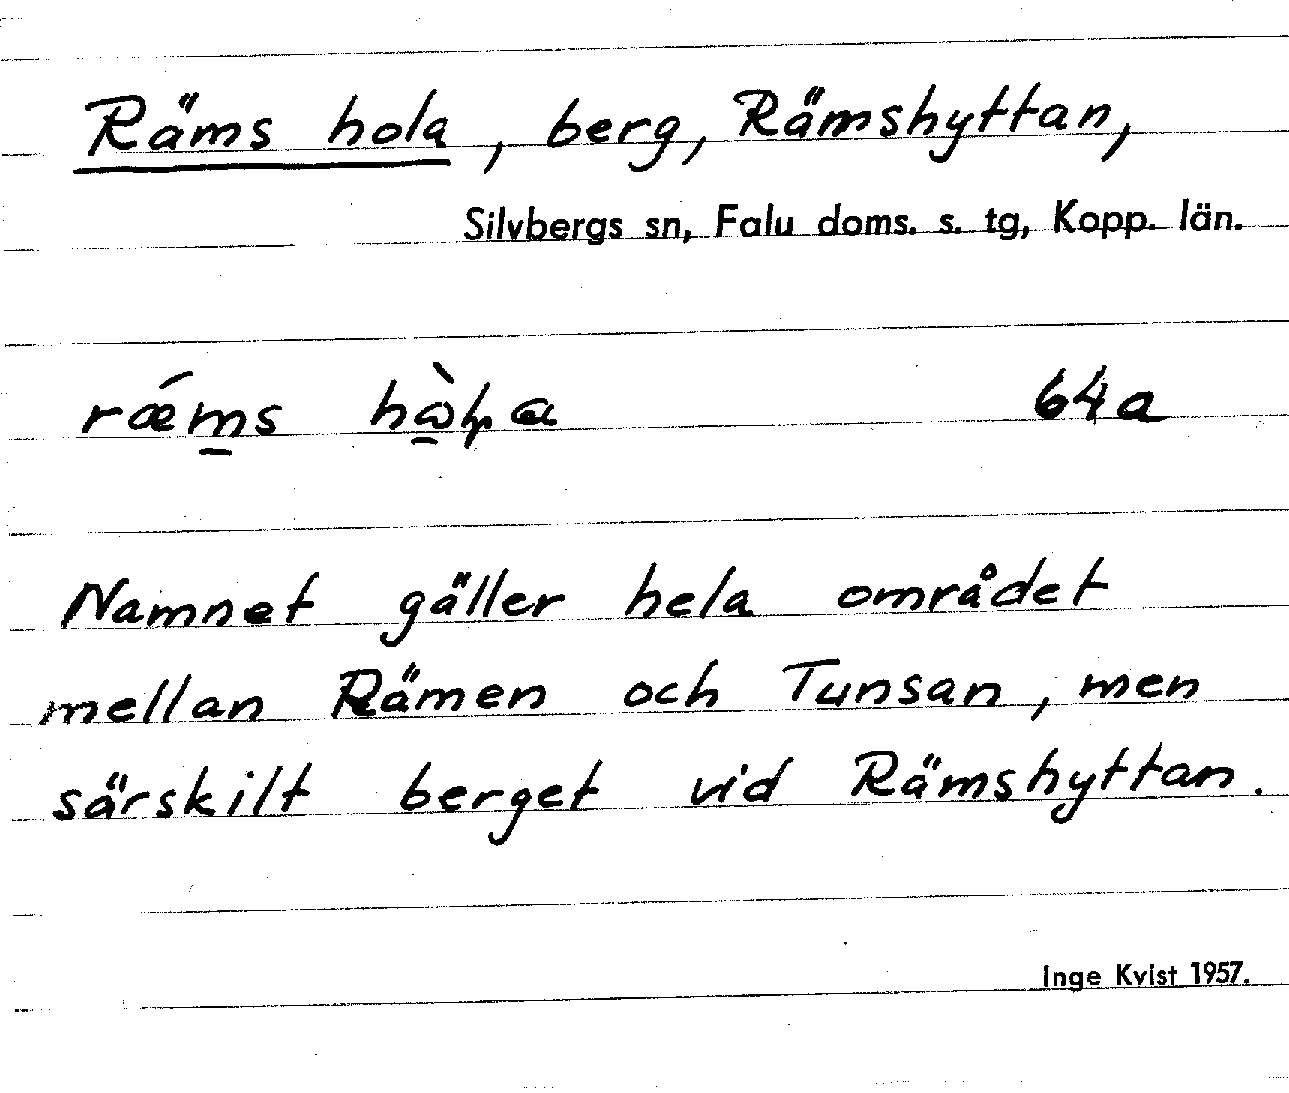 Räms hola, berg, Rämshyttan,
Silvbergs sn, Falu doms. s. tg, Kopp. län.
64a
Namnet gäller hela området
mellan Rämen och Tunsan, men
särskilt berget vid Rämshyttan.
Inge Kvist 1957.